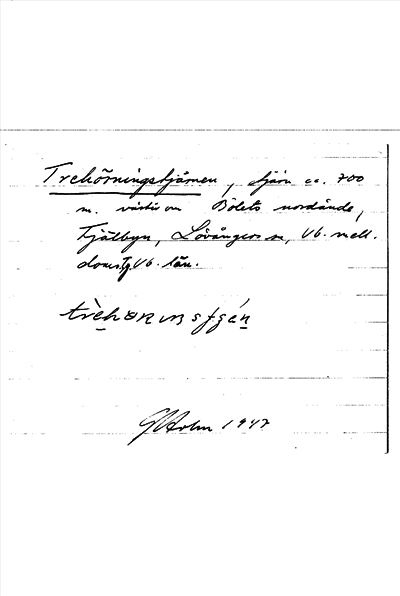 Trehörningstjärnen, tjärn ca. 700
m. väster om Bölets nordände,
Fjälbyn, Lövångers sn, Vb. mell.
doms. Vb. län.
G Holm 1947